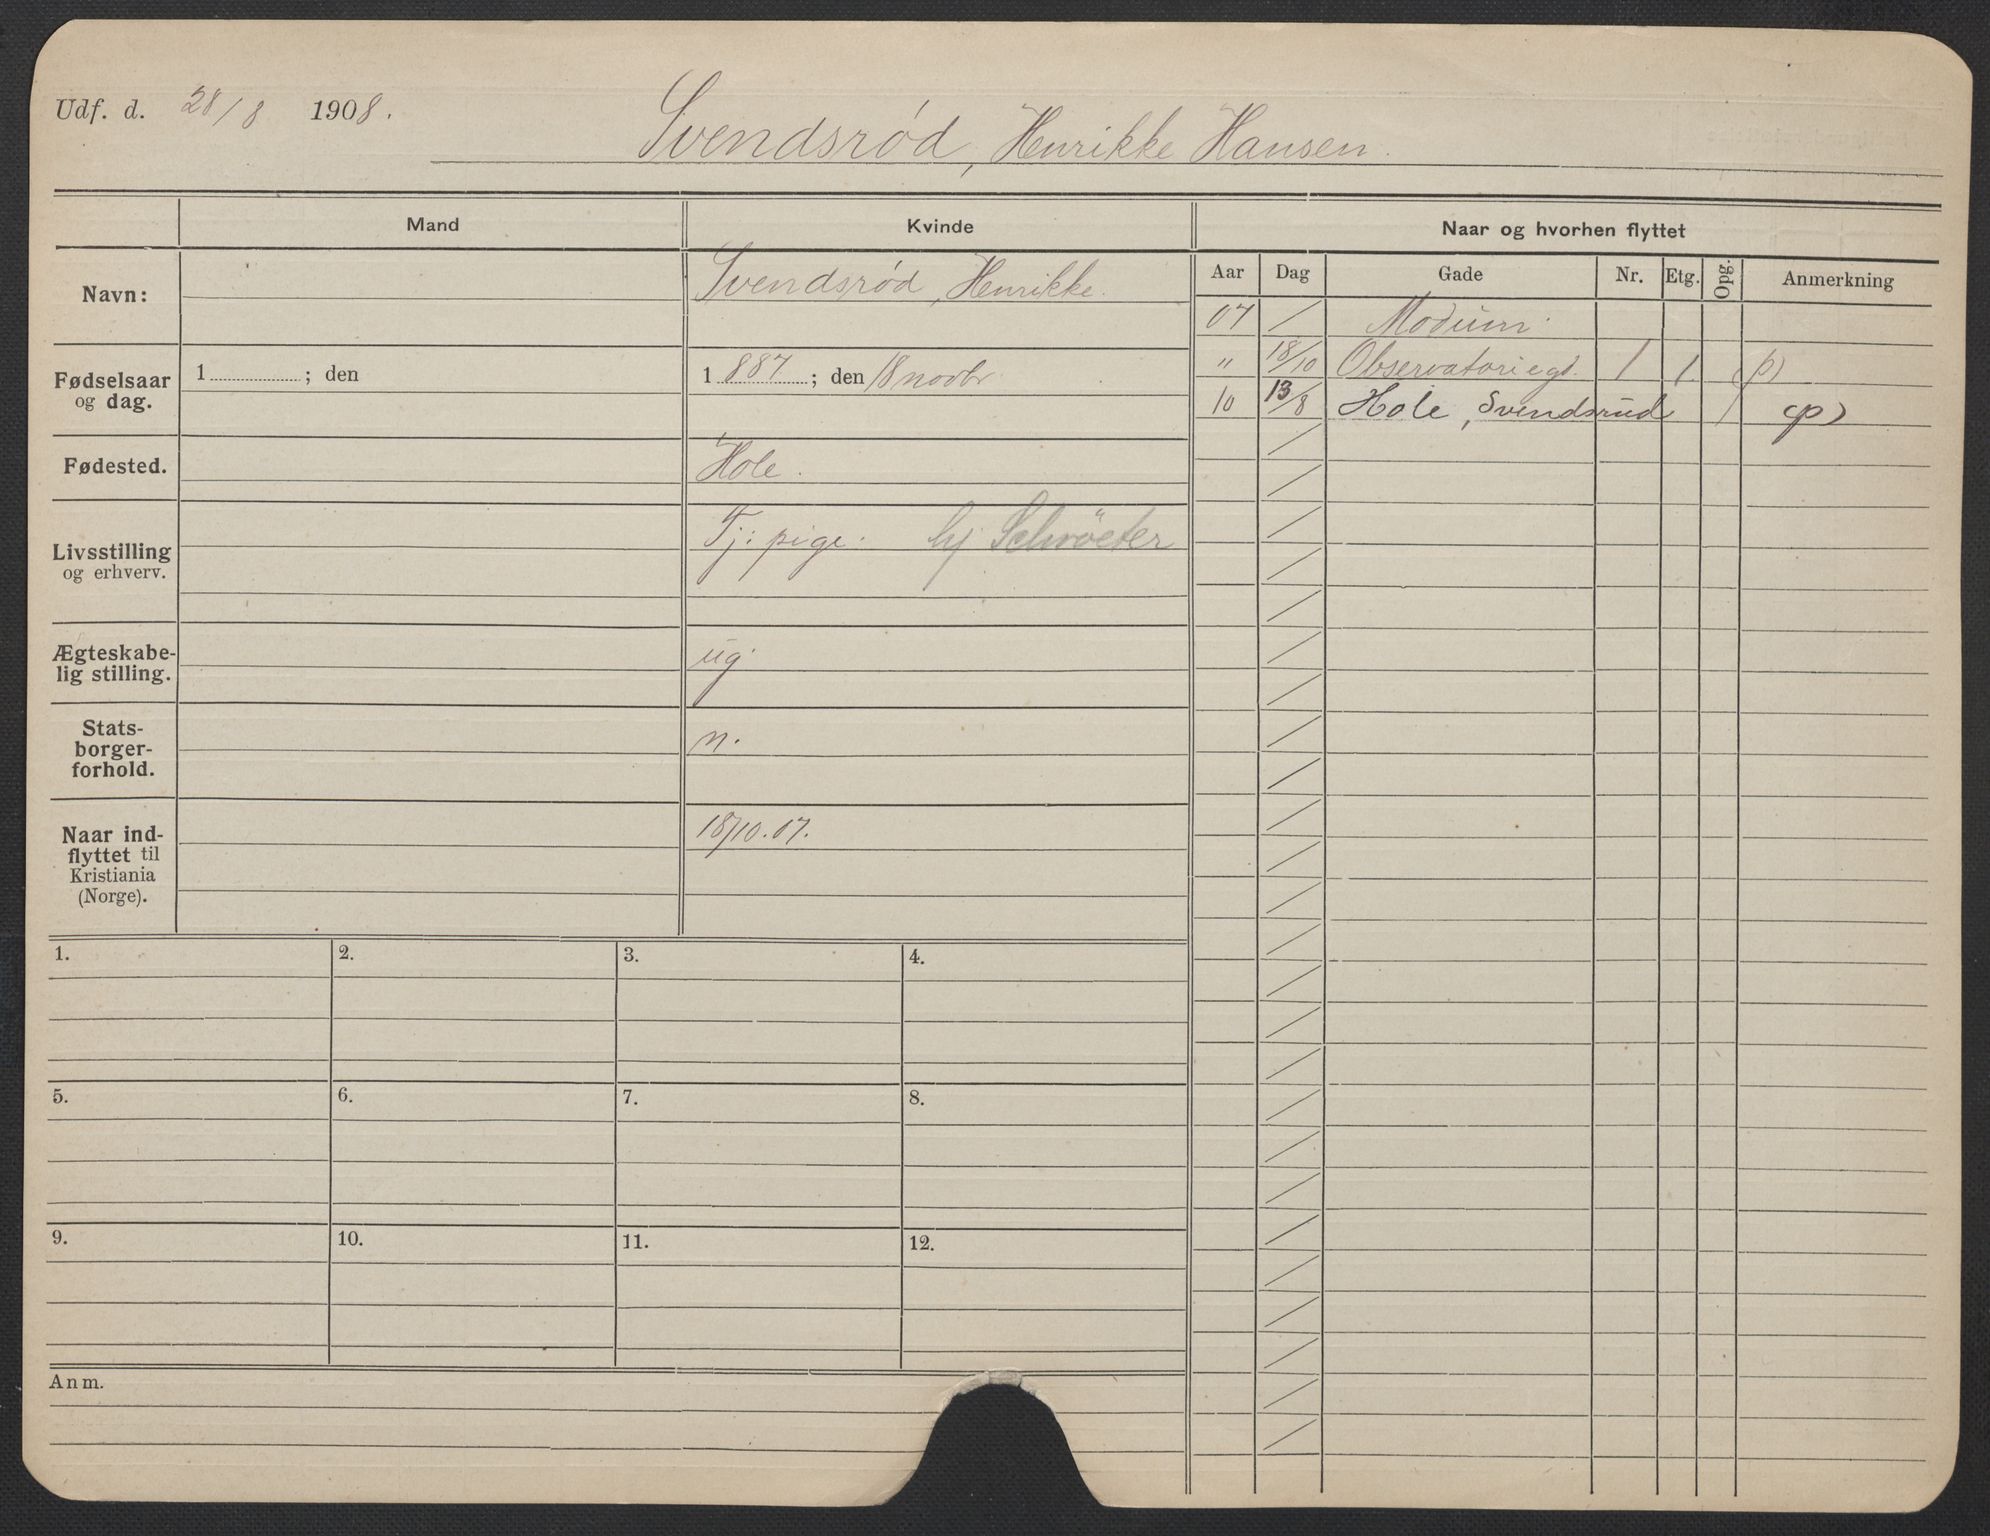 Udf. d. 28/8 1908.
Svendsrød, Henrikke Hansen.
Mand Kvinde Naar og hvorhen flyttet
Aar Dag Gade Nr. Etg. Opg. Anmerkning
Navn: Svendsrød, Henrikke.
07 / Modum.
Fødselsaar og dag. 1 ; den 1 887 ; den 18 novbr.
" 18/10 Observatoriegd. 1 1. (p)
10 13/8 Hole, Svendsrud (p)
Fødested. Hole.
Livsstilling og erhverv. Tj: pige. hj Schröeter
Ægteskabe-
lig stilling. ug.
Stats-
borger-
forhold. n.
Naar ind-
flyttet til
Kristiania
(Norge). 18/10.07.
1. 2. 3. 4.
5. 6. 7. 8.
9. 10. 11. 12.
Anm.